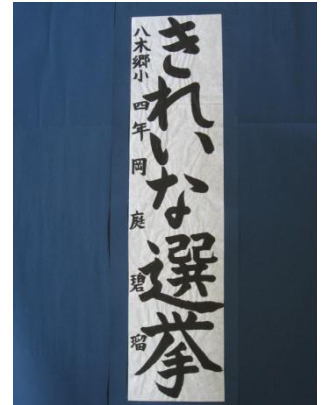 きれいな選挙
八木郷小四年岡庭碧瑠